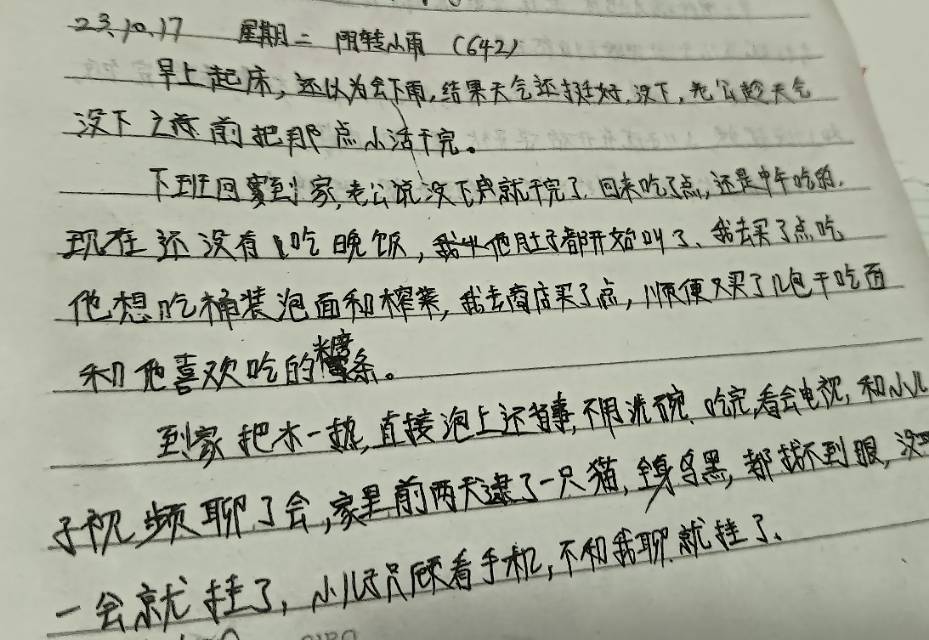 23.10.17 星期二 阴转小雨 (642)
早上起床,还以为会下雨,结果天气还挺好,没下,老公趁天气
没下之前把那点小活干完。
下班回到家,老公说没下雨就干完了,回来吃了点,还是中午吃的,
现在还没有吃晚饭,我听他肚子都开始叫了、我去买了点吃
他想吃桶装泡面和榨菜,我去商店买了点,顺便又买了几包干吃面
和他喜欢吃的糖条。
到家把水一热,直接泡上还省事,不用洗碗,吃完,看会电视,和小儿
子视频聊了会,家里前两天逮了一只猫,全身乌黑,都找不到眼,没
一会就挂了,小儿子只顾看手机,不和我聊就挂了、